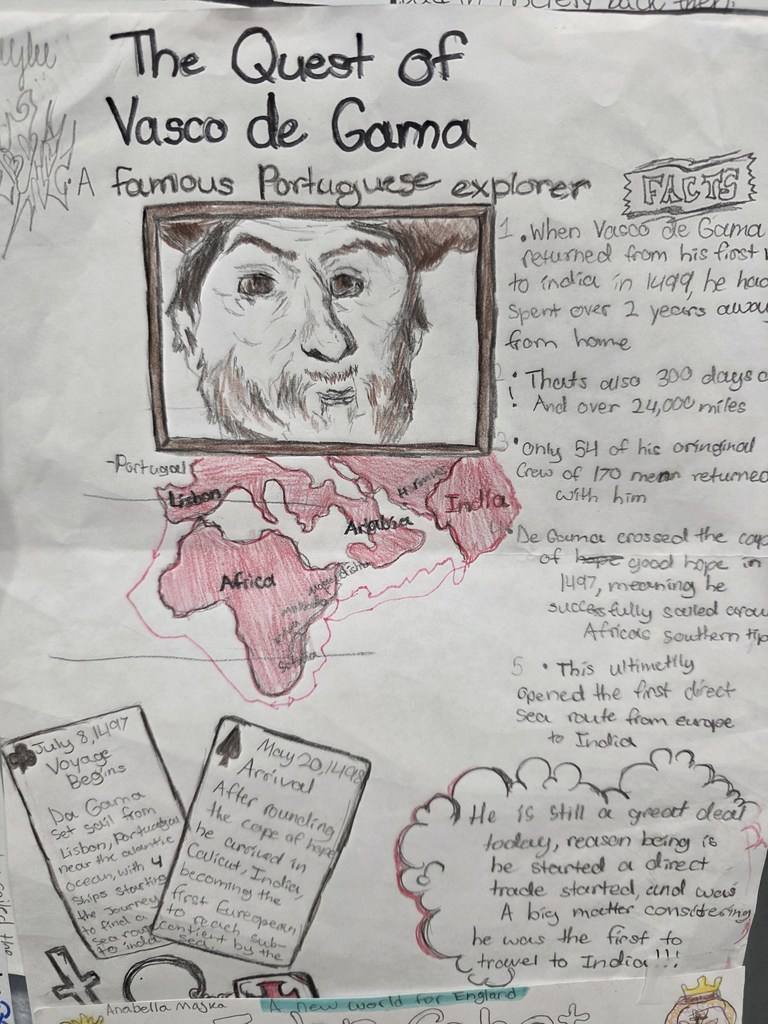 The Quest of
Vasco de Gama
A famous Portuguese explorer
FACTS
1. When Vasco de Gama
returned from his first
to india in 1499, he had
spent over 2 years away
from home
2 • Thats also 300 days
! And over 24,000 miles
3 • Only 54 of his oringinal
Crew of 170 men returned
with him
4. De Gama crossed the cap
of hope good hope in
1497, meaning he
successfully sailed arou
Africas southern tip
5 • This ultimetlly
opened the first direct
sea route from europe
to India
-Portugal
Lisbon
Hormuz
India
Arabia
Africa
Mogadishu
Sofala
July 8, 1497
Voyage
Begins
Da Gama
set sail from
Lisbon, Portugal
near the atlantic
ocean, with 4
ships starting
the Journey
to find a
sea rou
to india
May 20, 1498
Arrival
After rounding
the cape of hope
he arrived in
Calicut, India,
becoming the
first European
to reach sub-
contient by the
sea.
He is still a great deal
today, reason being is
he started a direct
trade started, and was
A big matter considering
he was the first to
travel to India!!!
Anabella Majka
A new world for England